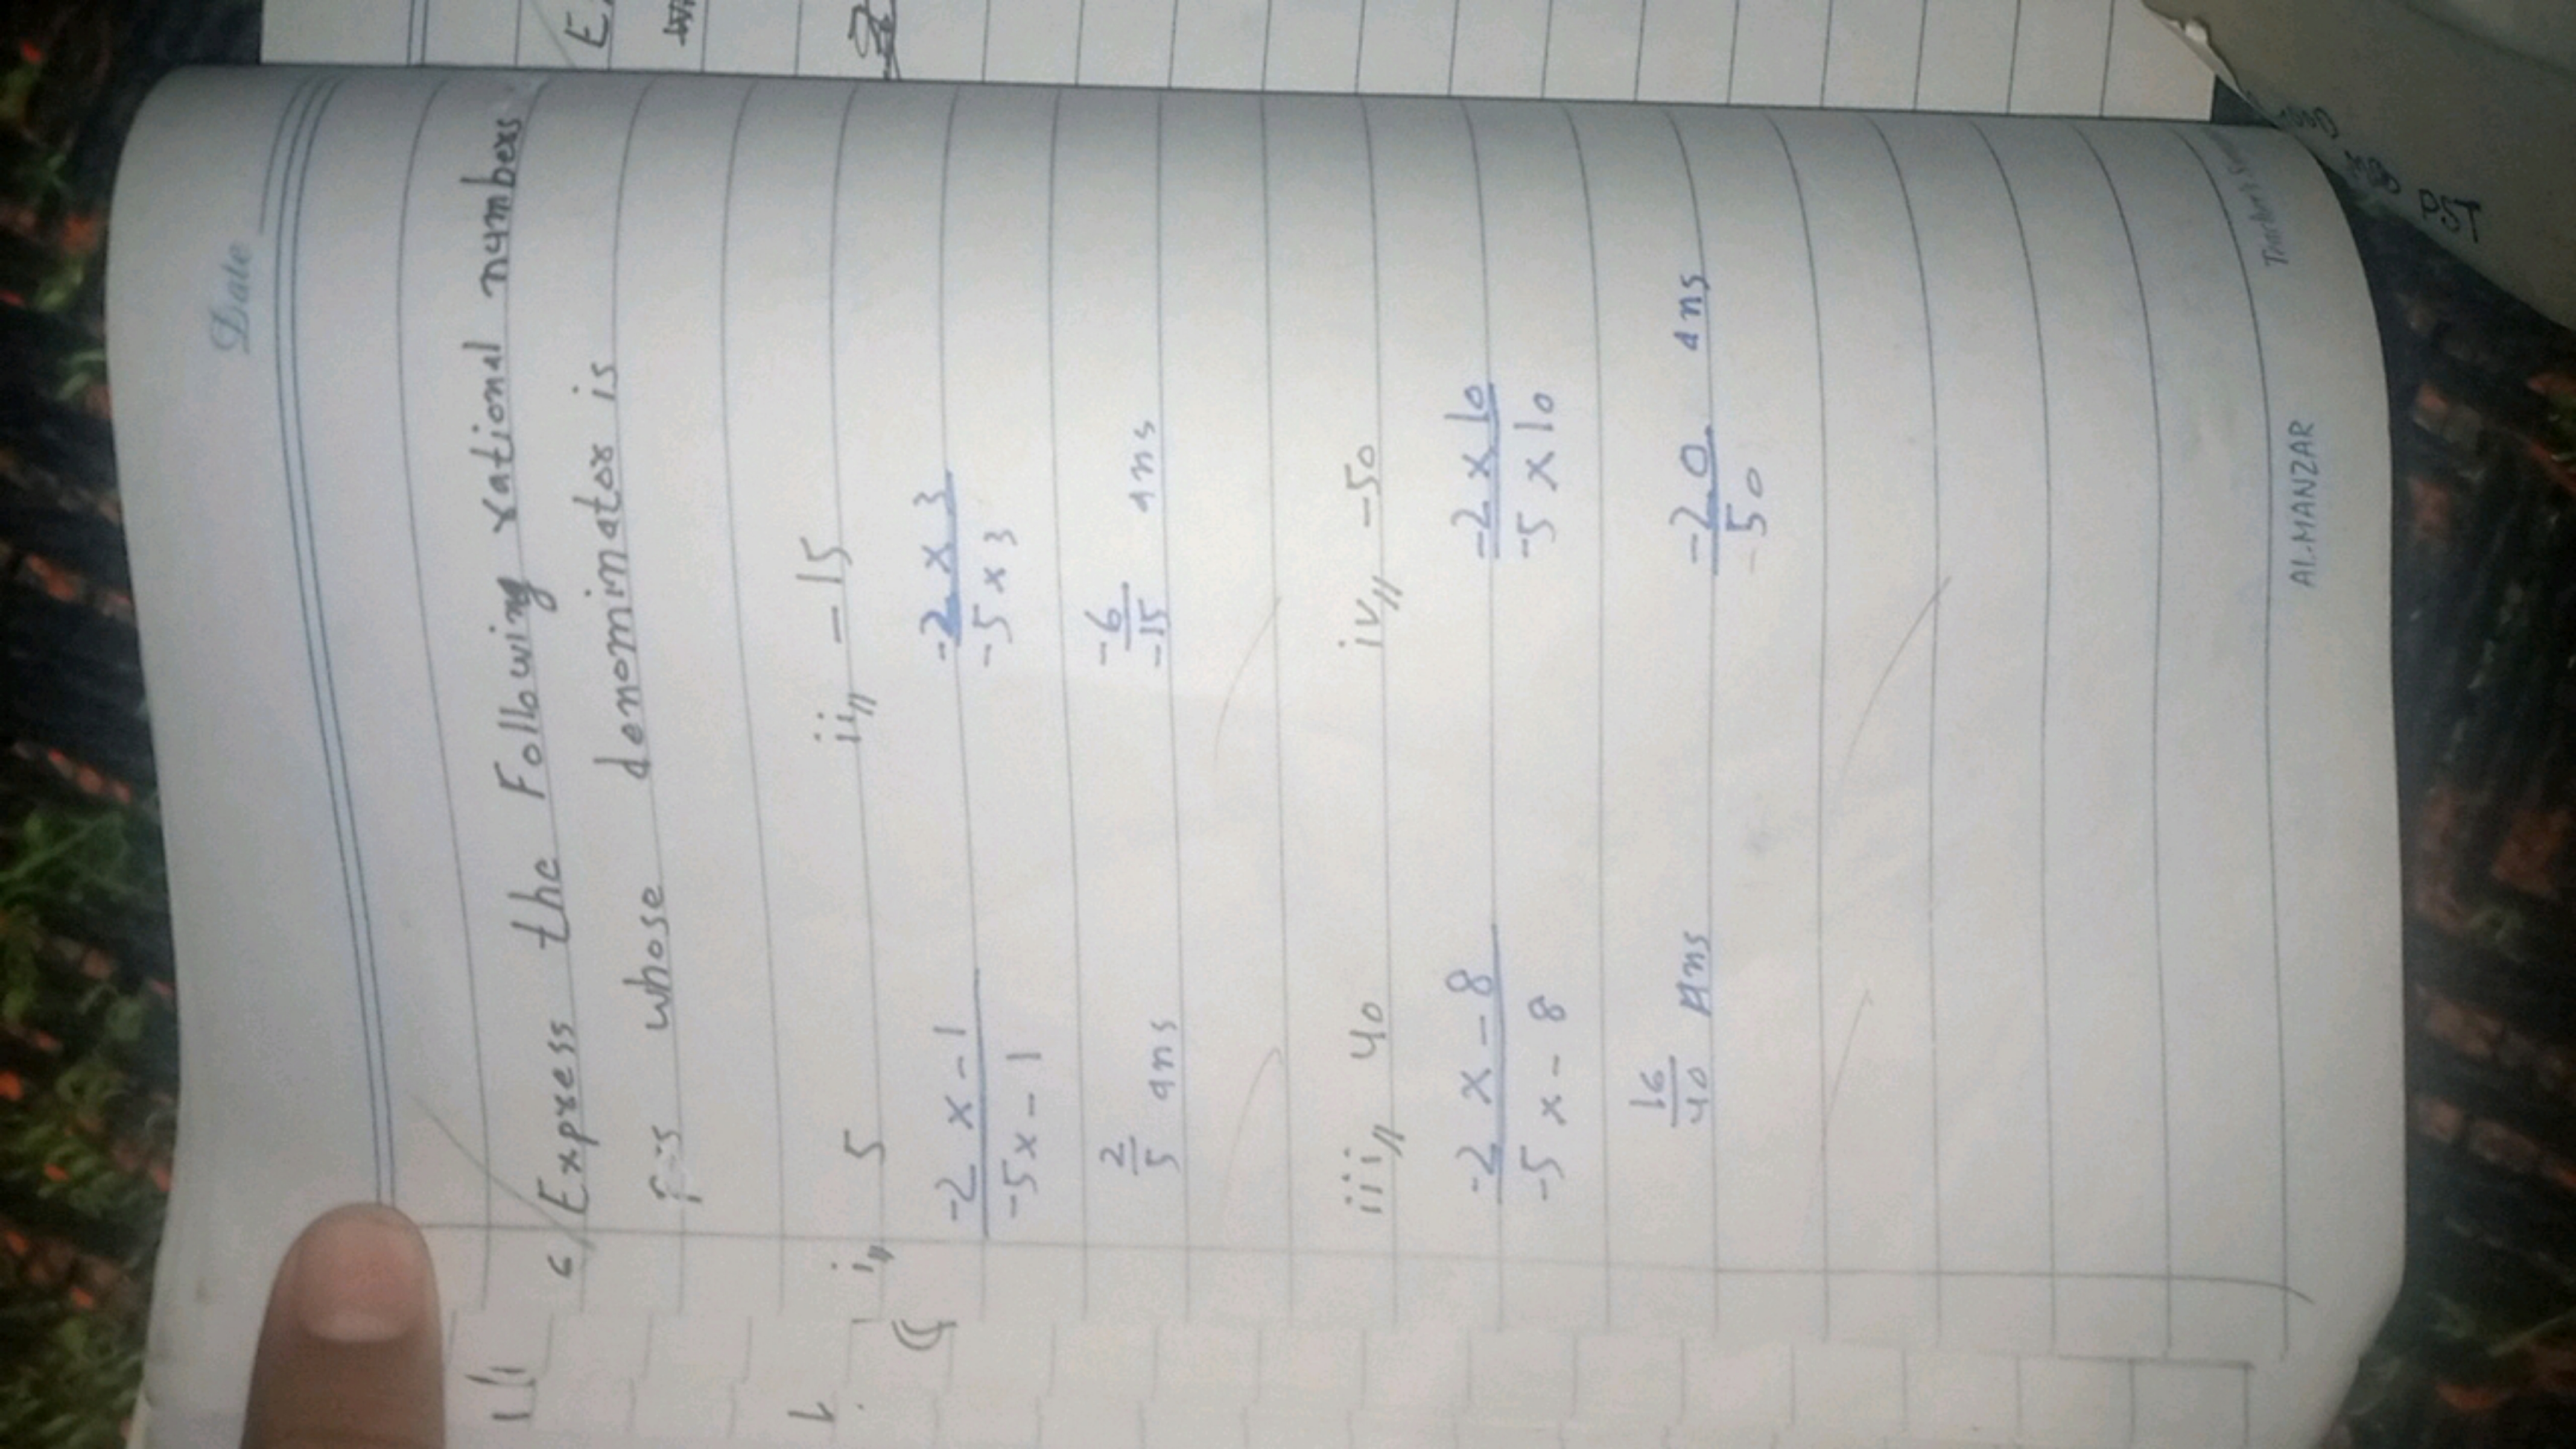 Date
6 Express the Following rational numbers
whose denominator is
i,, 5 ii,, -15
-2 x -1 -2 x 3
-5 x -1 -5 x 3
2 -6
5 ans -15 ans
iii,, 40 iv,, -50
-2 x -8 -2 x 10
-5 x -8 -5 x 10
16 -20
40 Ans -50 ans
AL-MANZAR
PST